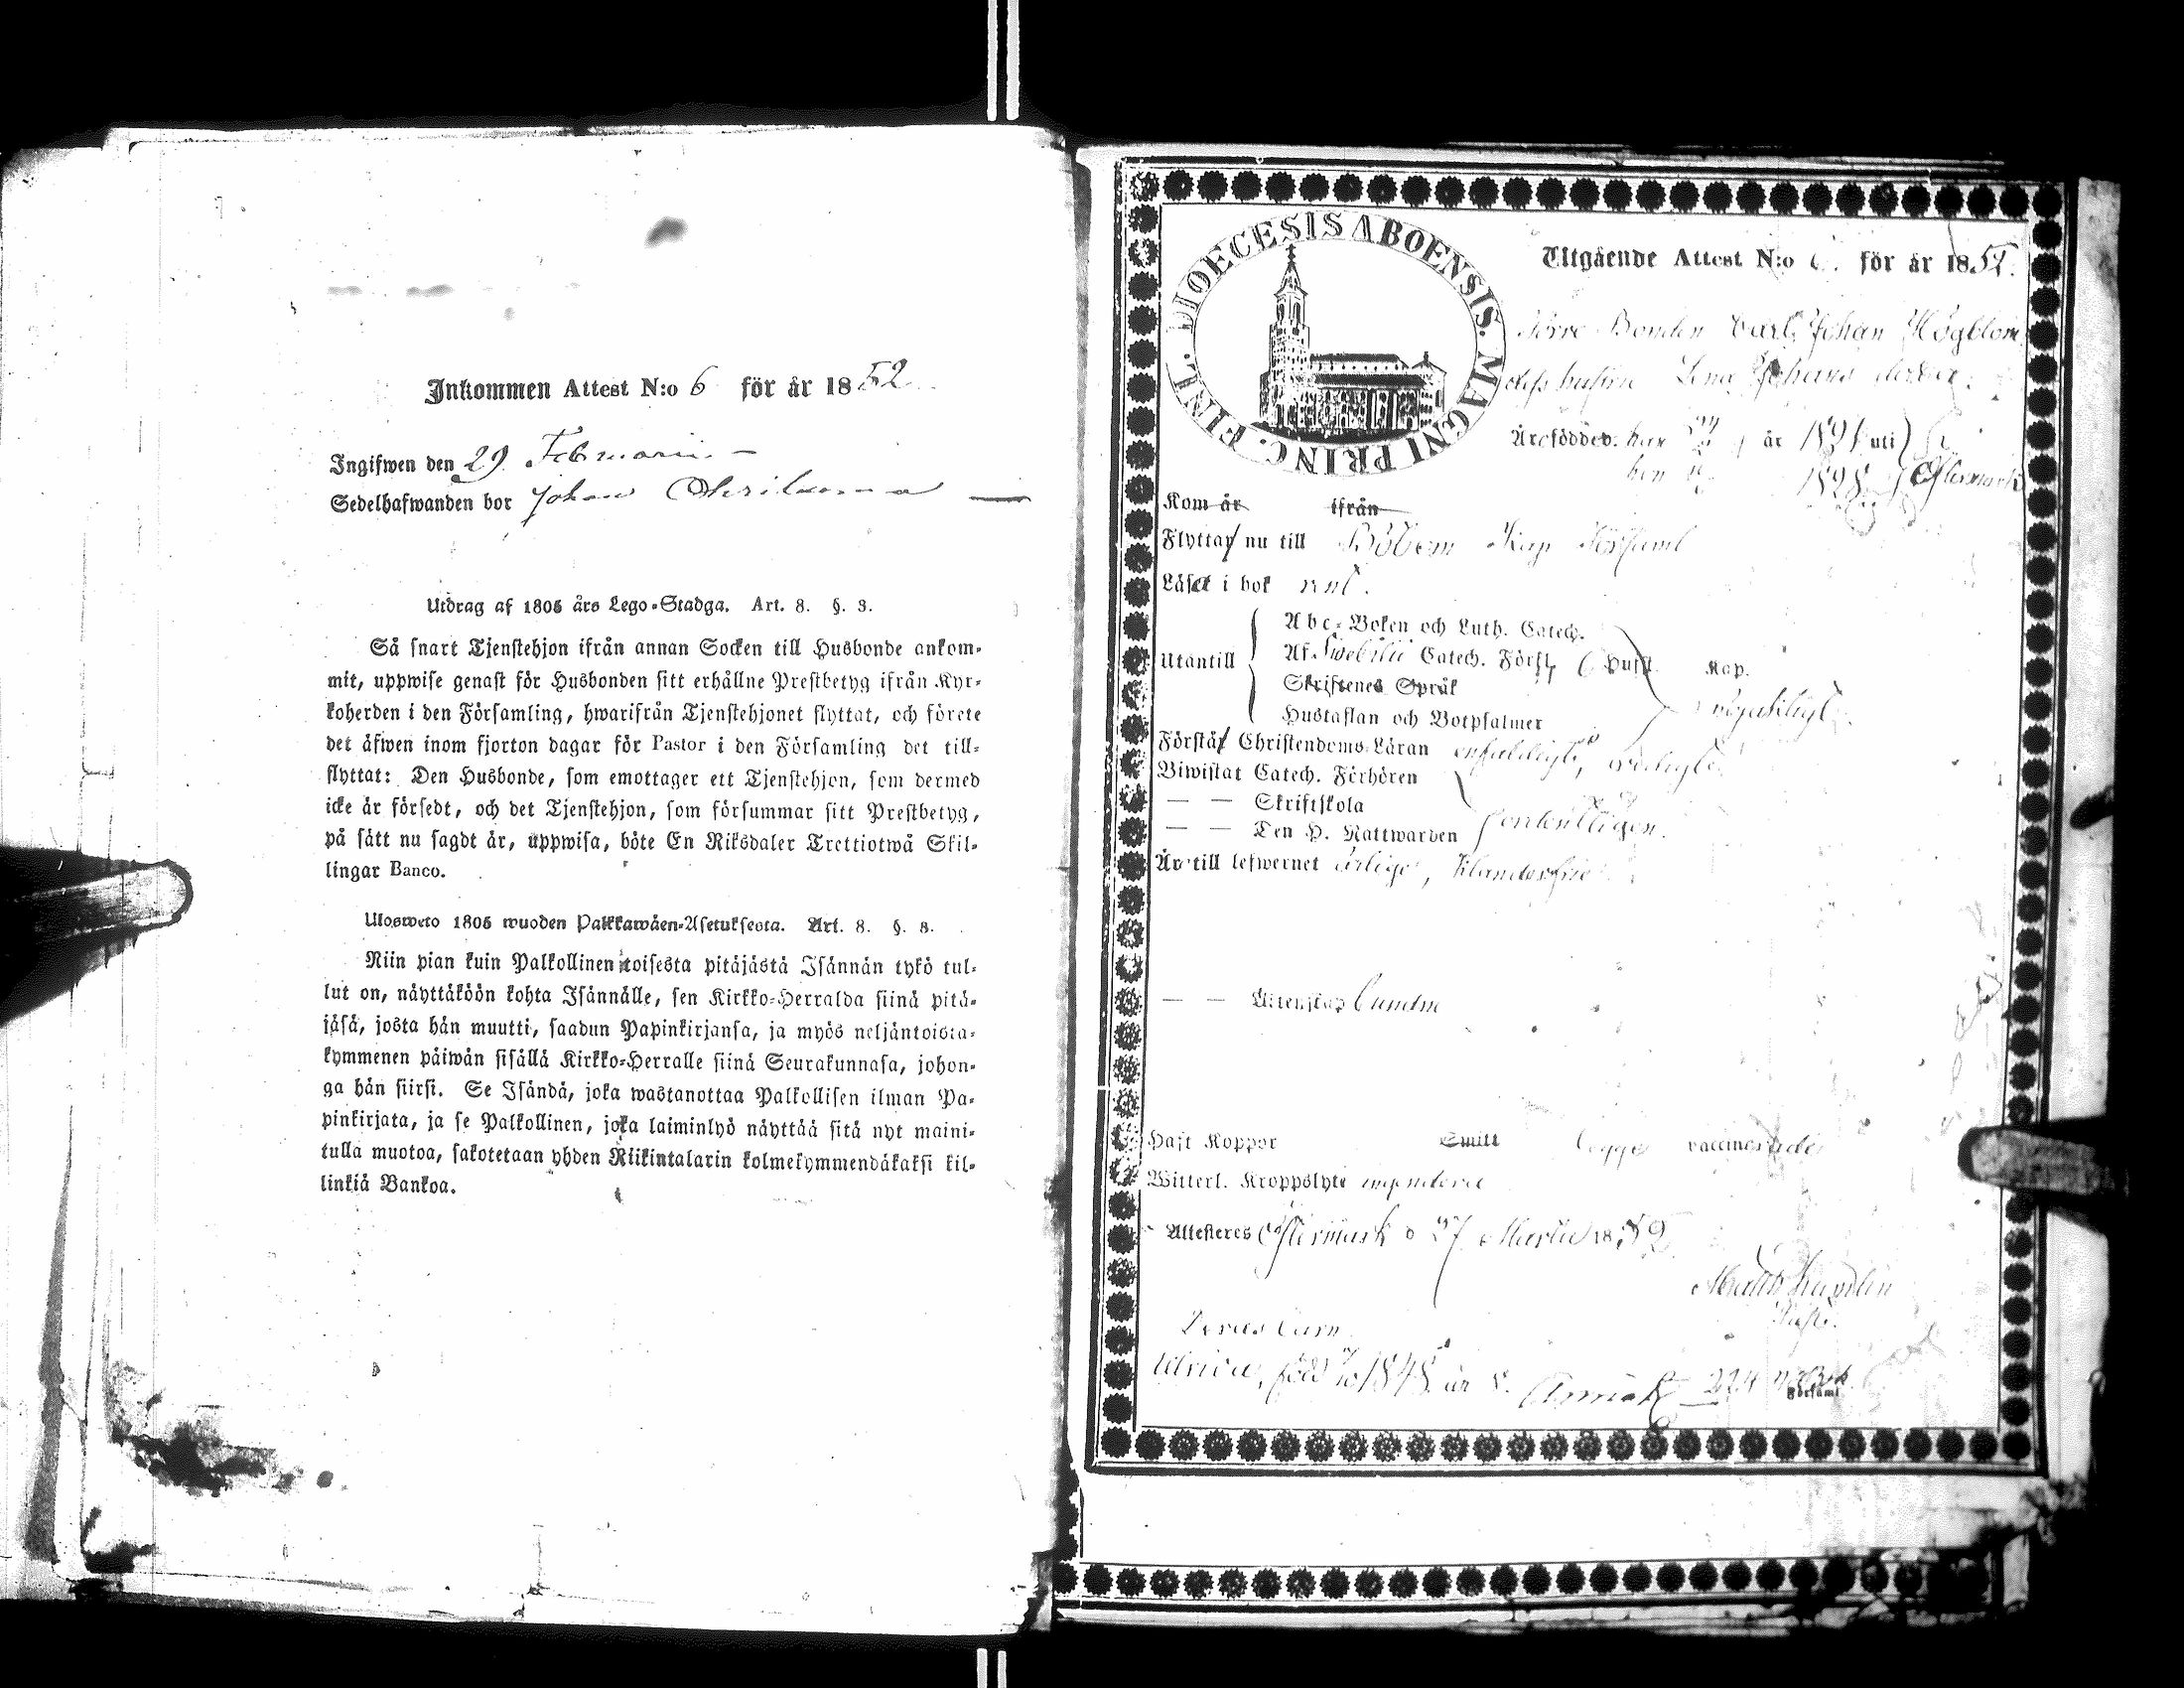 Inkommen Attest N:o 6 för år 1852
Ingifwen den 29 Februarii
Sedelhafwanden bor Johan
Utdrag af 1805 års Lego-Stadga. Art. 8. §. 3.
Så snart Tjenstehjon ifrån annan Socken till Husbonde ankom-
mit, uppwise genast för Husbonden sitt erhållne Prestbetyg ifrån Kyr-
koherden i den Församling, hwarifrån Tjenstehjonet flyttat, och förete
det äfwen inom fjorton dagar för Pastor i den Församling det till-
flyttat: Den Husbonde, som emottager ett Tjenstehjon, som dermed
icke är försedt, och det Tjenstehjon, som försummar sitt Prestbetyg,
på sätt nu sagdt är, uppwisa, böte En Riksdaler Trettiotwå Skil-
lingar Banco.
Ulosweto 1805 wuoden Palkkawäen-Asetuksesta. Art. 8. §. 3.
Niin pian kuin Palkollinen toisesta pitäjästä Isännän tykö tul-
lut on, näyttäköön kohta Isännälle, sen Kirkko-Herralda siinä pitä-
jäsä, josta hän muutti, saadun Papinkirjansa, ja myös neljäntoista-
kymmenen päiwän sisällä Kirkko-Herralle siinä Seurakunnasa, johon-
ga hän siirsi. Se Isändä, joka wastanottaa Palkollisen ilman Pa-
pinkirjata, ja se Palkollinen, joka laiminlyö näyttää sitä nyt maini-
tulla muotoa, sakotetaan yhden Riikintalarin kolmekymmendäkaksi kil-
linkiä Bankoa.
DIOECESIS ABOENSIS. MAGNI PRINC. FINL.
Utgående Attest N:o 6. för år 1852.
Bonden Carl Johan Högblom
hustru Lena Johans dotter
Äro födde han år 1821 uti
hon 1828 Östermark
Kom år ifrån
Flytta nu till Kap Församl
Läsa i bok rent.
Utantill
Abc-Boken och Luth. Catech.
Af Swebilii Catech. Förkl. 6 Hufst. Kap.
Skriftenes Språk
Hustaflan och Botpsalmer
Förstå Christendoms-Läran enfaldigt,
Biwistat Catech. Förhören
— — Skriftskola
— — Den H. Nattwarden ordentligen.
Äro till lefwernet ärlige, klanderfrie
— — Äktenskap
Haft Koppor Smitt begge vaccinerade
Witterl. Kroppslyte ingendera
Attesteres Östermark d 27 Martii 1852
Deras barn
Ulrica, född 1848 är
Församl.